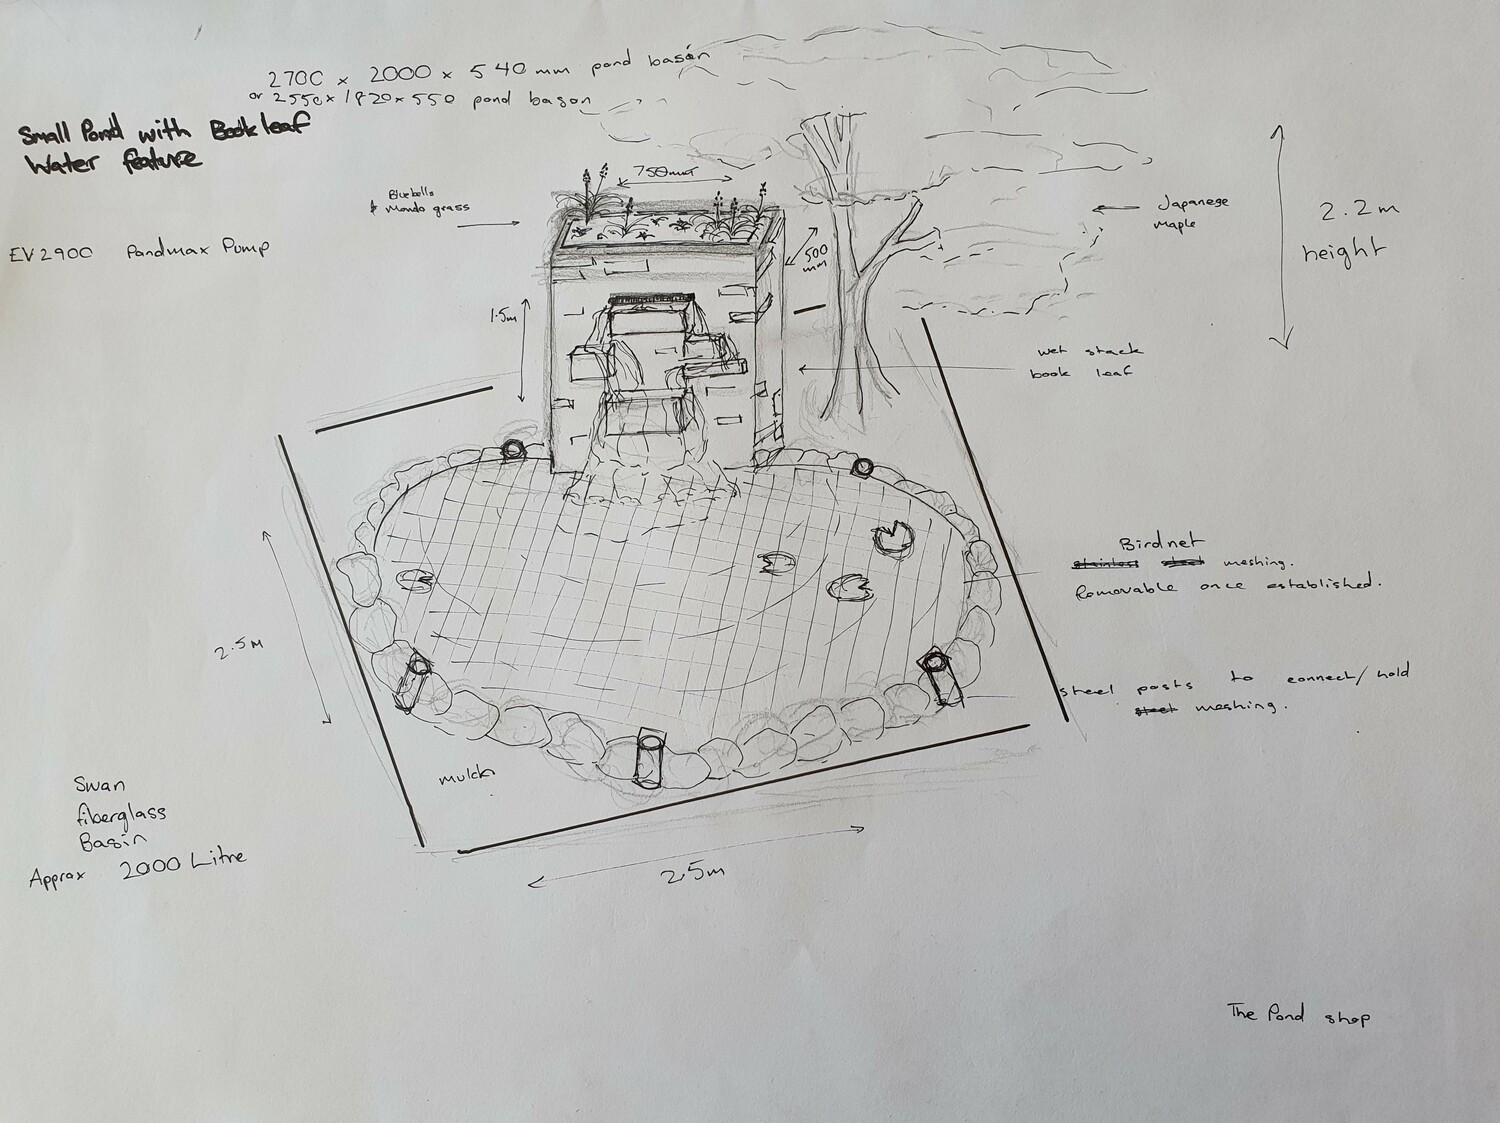 2700 x 2000 x 540 mm pond basin
or 2550 x 1820 x 550 pond bason
Small Pond with Book leaf
Water feature
750mm
Bluebells
& Mondo grass
Japanese
Maple
2.2m
height
EV2900 Pondmax Pump
500
mm
1.5m
wet stack
book leaf
Birdnet
stainless steel meshing.
Removable once established.
2.5M
steel posts to connect/hold
steel meshing.
mulch
Swan
fiberglass
Basin
Approx 2000 Litre
2.5m
The Pond shop